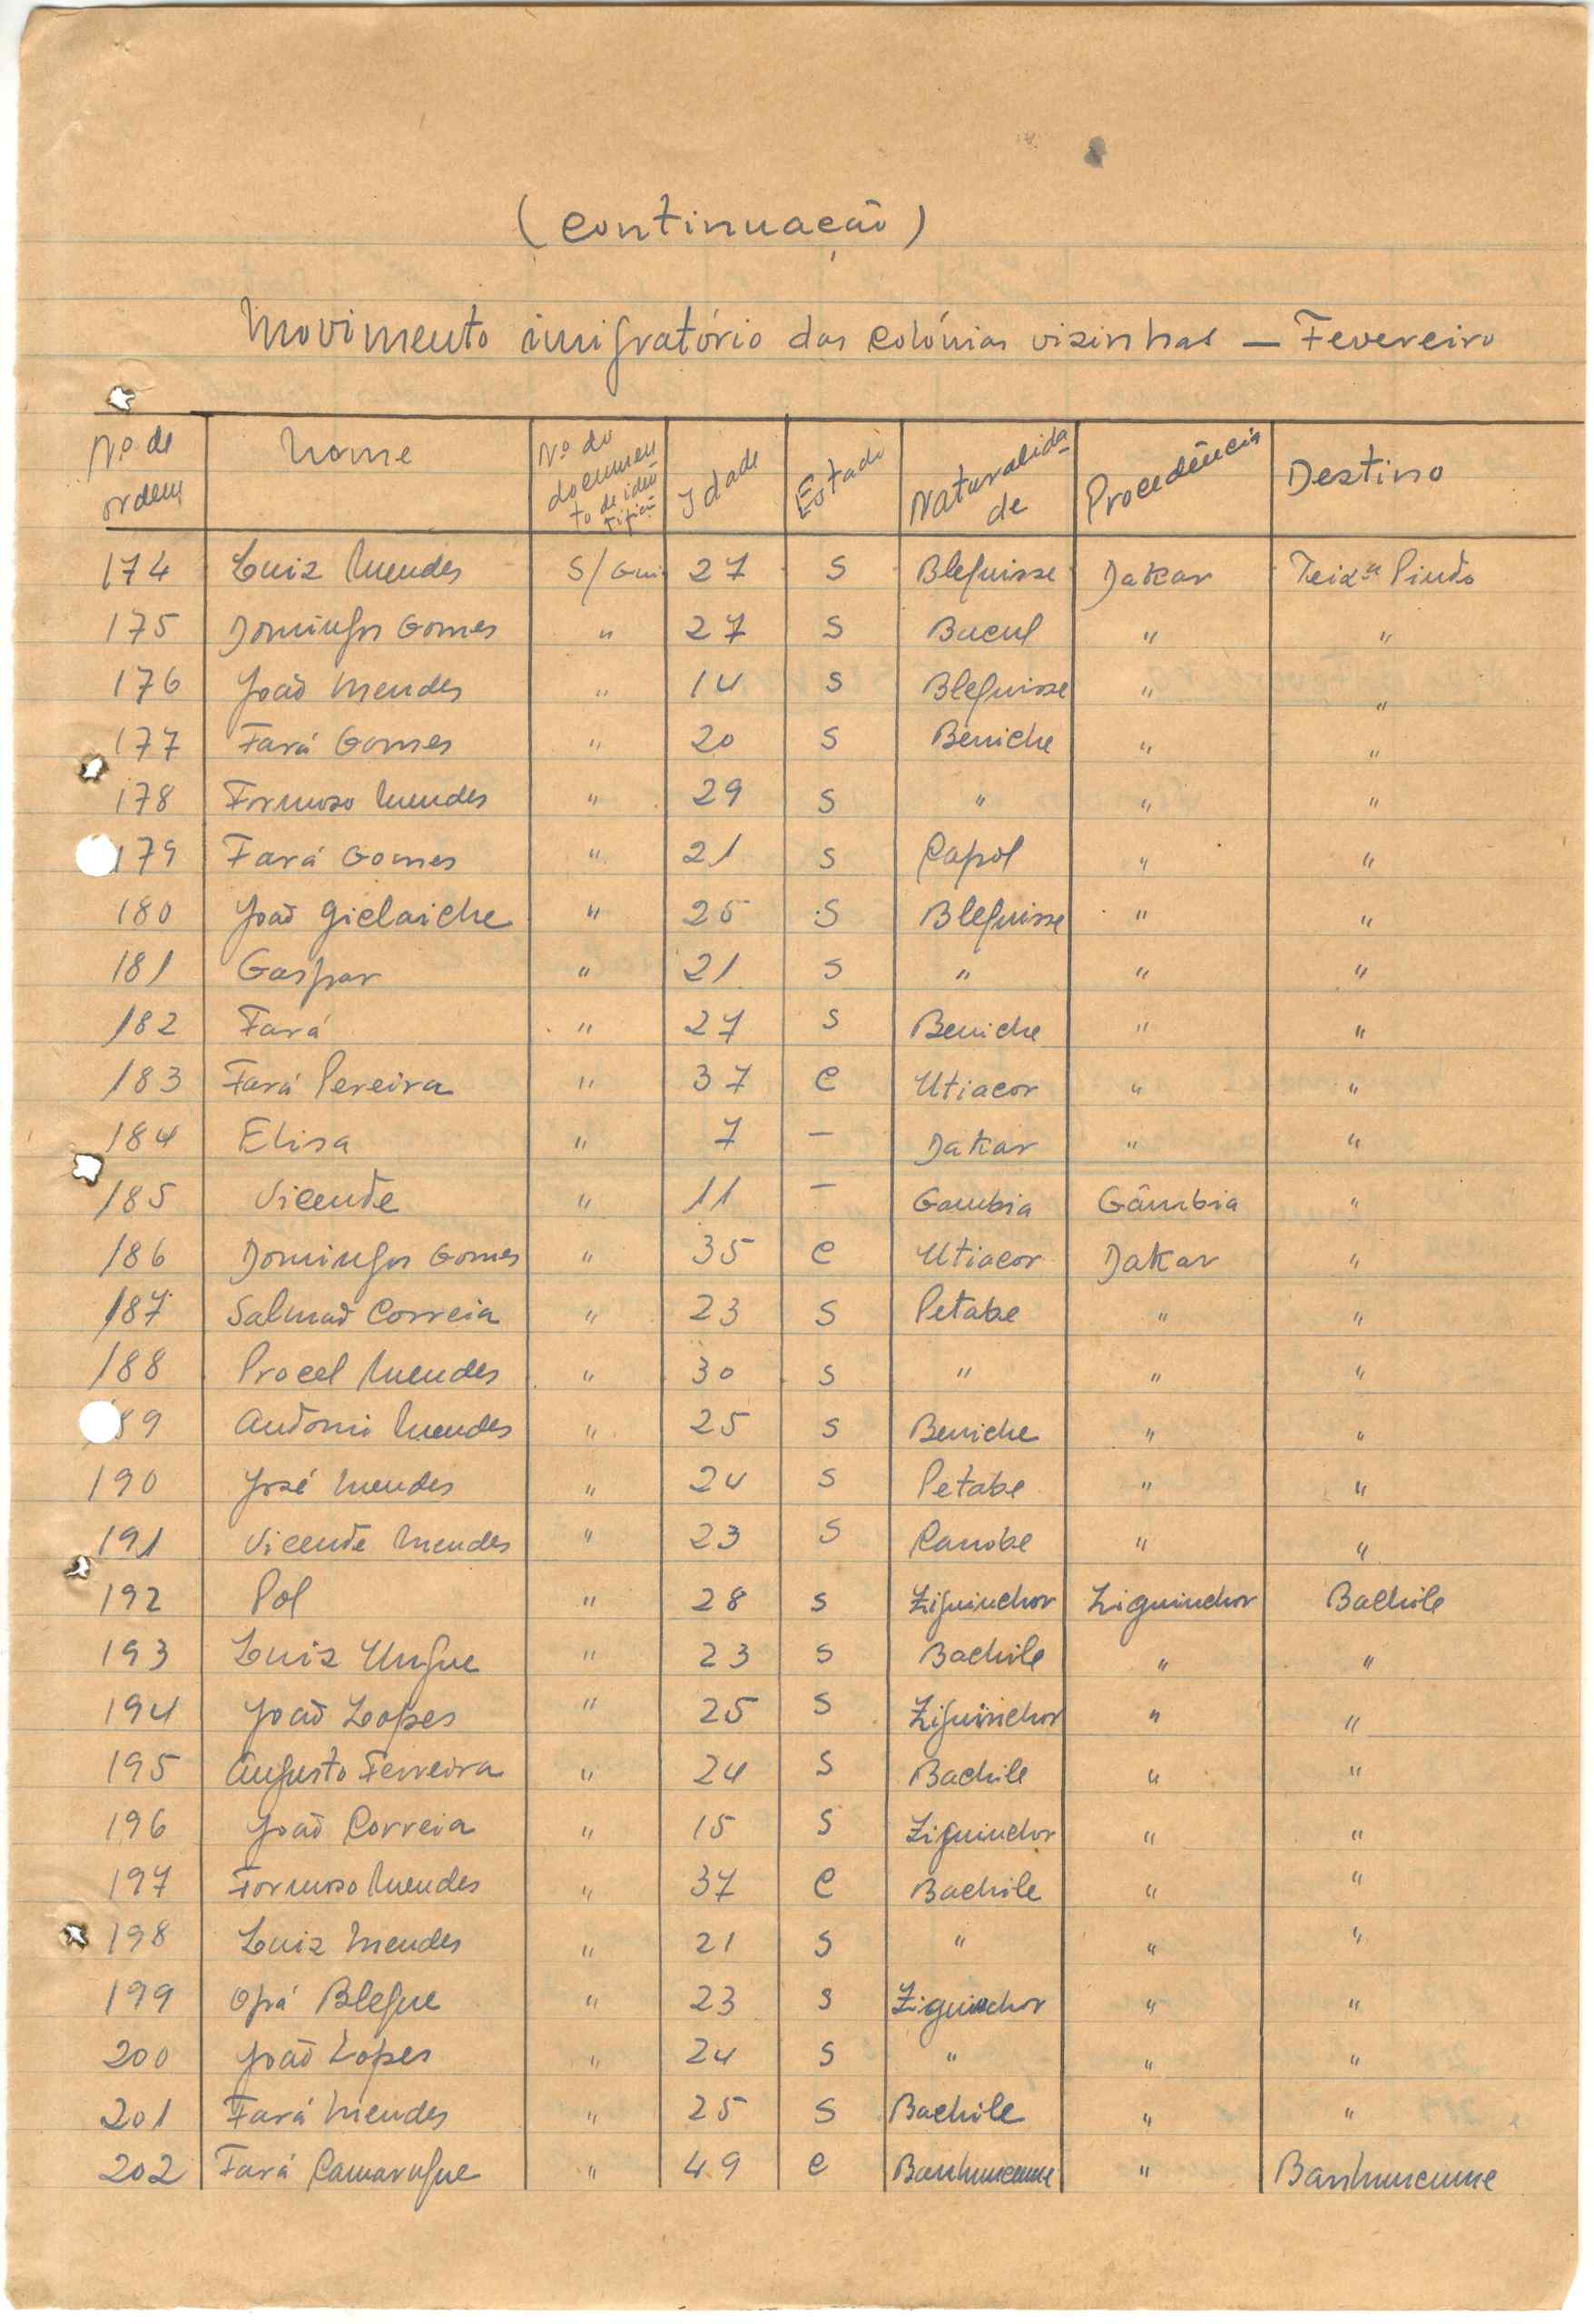 (Continuação)
Movimento imigratório das Colónias visinhas — Fevereiro
Nº de ordem | Nome | Nº do documento de identificã | Idade | Estado | Naturalidade | Procedência | Destino
174 | Luiz Mendes | S/Gui | 27 | S | Bleguisse | Dakar | Teixrª Pinto
175 | Domingos Gomes | " | 27 | S | Bucul | " | "
176 | João Mendes | " | 14 | S | Bleguisse | " | "
177 | Fará Gomes | " | 20 | S | Beniche | " | "
178 | Formoso Mendes | " | 29 | S | " | " | "
179 | Fará Gomes | " | 21 | S | Capol | " | "
180 | João Gielaiche | " | 25 | S | Bleguisse | " | "
181 | Gaspar | " | 21 | S | " | " | "
182 | Fará | " | 27 | S | Beniche | " | "
183 | Fará Pereira | " | 37 | C | Utiacor | " | "
184 | Elisa | " | 7 | — | Dakar | " | "
185 | Vicente | " | 11 | — | Gambia | Gâmbia | "
186 | Domingos Gomes | " | 35 | C | Utiacor | Dakar | "
187 | Salmão Correia | " | 23 | S | Petabe | " | "
188 | Procel Mendes | " | 30 | S | " | " | "
89 | Antoni Mendes | " | 25 | S | Beniche | " | "
190 | José Mendes | " | 24 | S | Petabe | " | "
191 | Vicente Mendes | " | 23 | S | Canobe | " | "
192 | Pol | " | 28 | S | Ziguinchor | Ziguinchor | Bachile
193 | Luiz Ungue | " | 23 | S | Bachile | " | "
194 | João Lopes | " | 25 | S | Ziguinchor | " | "
195 | Augusto Ferreira | " | 24 | S | Bachile | " | "
196 | João Correia | " | 15 | S | Ziguinchor | " | "
197 | Formoso Mendes | " | 37 | C | Bachile | " | "
198 | Luiz Mendes | " | 21 | S | " | " | "
199 | Opá Blegue | " | 23 | S | Ziguinchor | " | "
200 | João Lopes | " | 24 | S | " | " | "
201 | Fará Mendes | " | 25 | S | Bachile | " | "
202 | Fará Camarugue | " | 49 | C | | " |